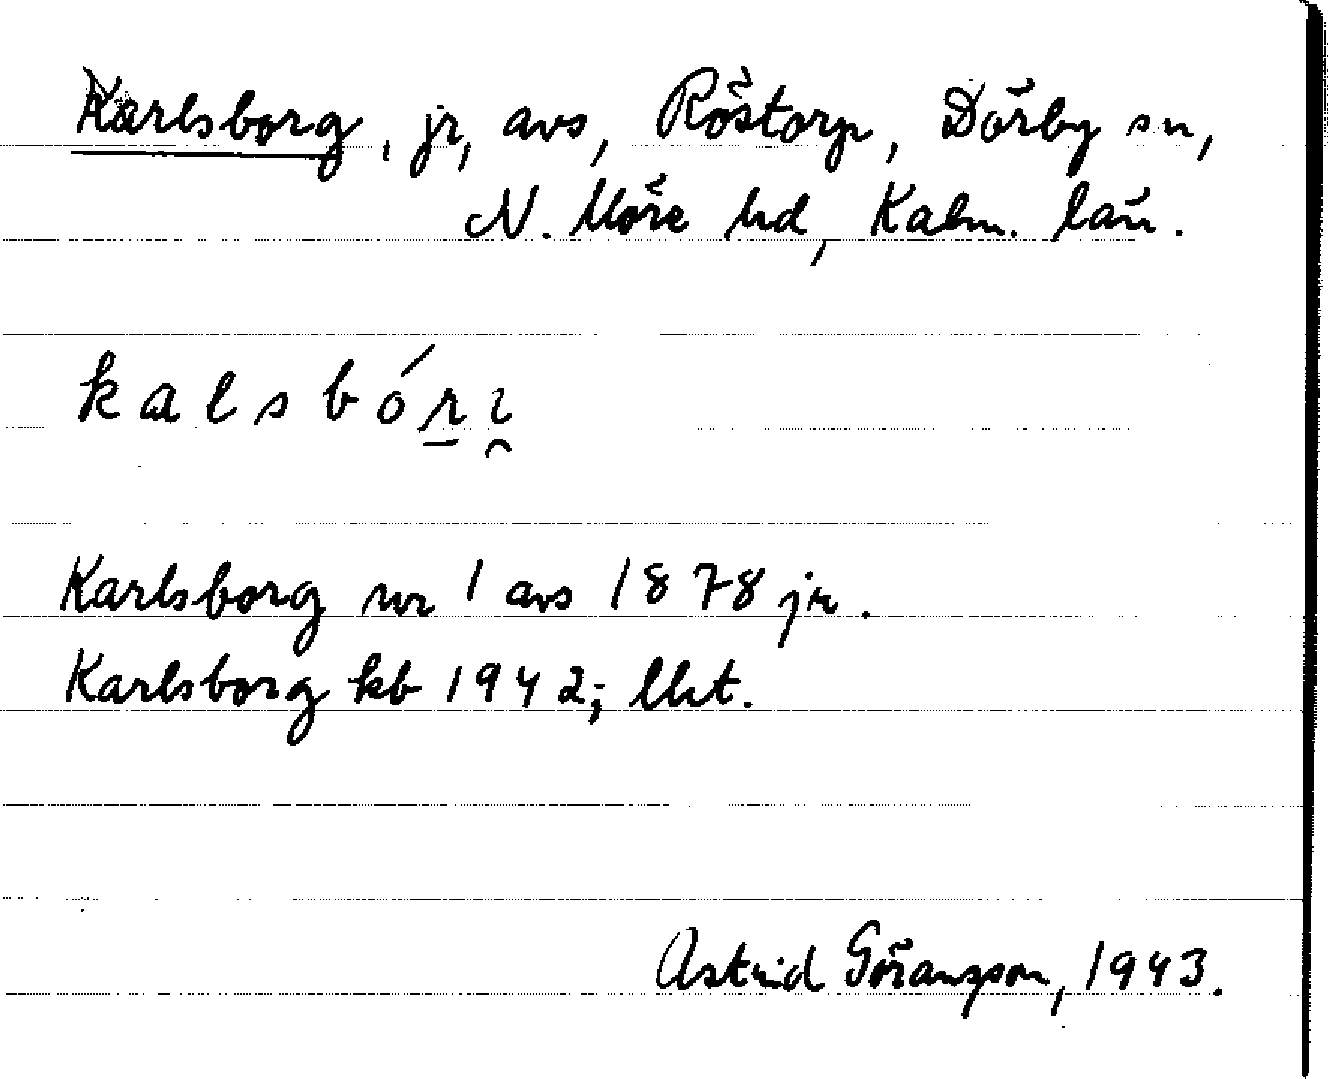 Karlsborg, jr, avs, Röstorp, Dörby sn,
N. Möre hd, Kalm. län.
kalsbórı̯
Karlsborg nr 1 avs 1878 jr.
Karlsborg kb 1942; llkt.
Astrid Göransson, 1943.